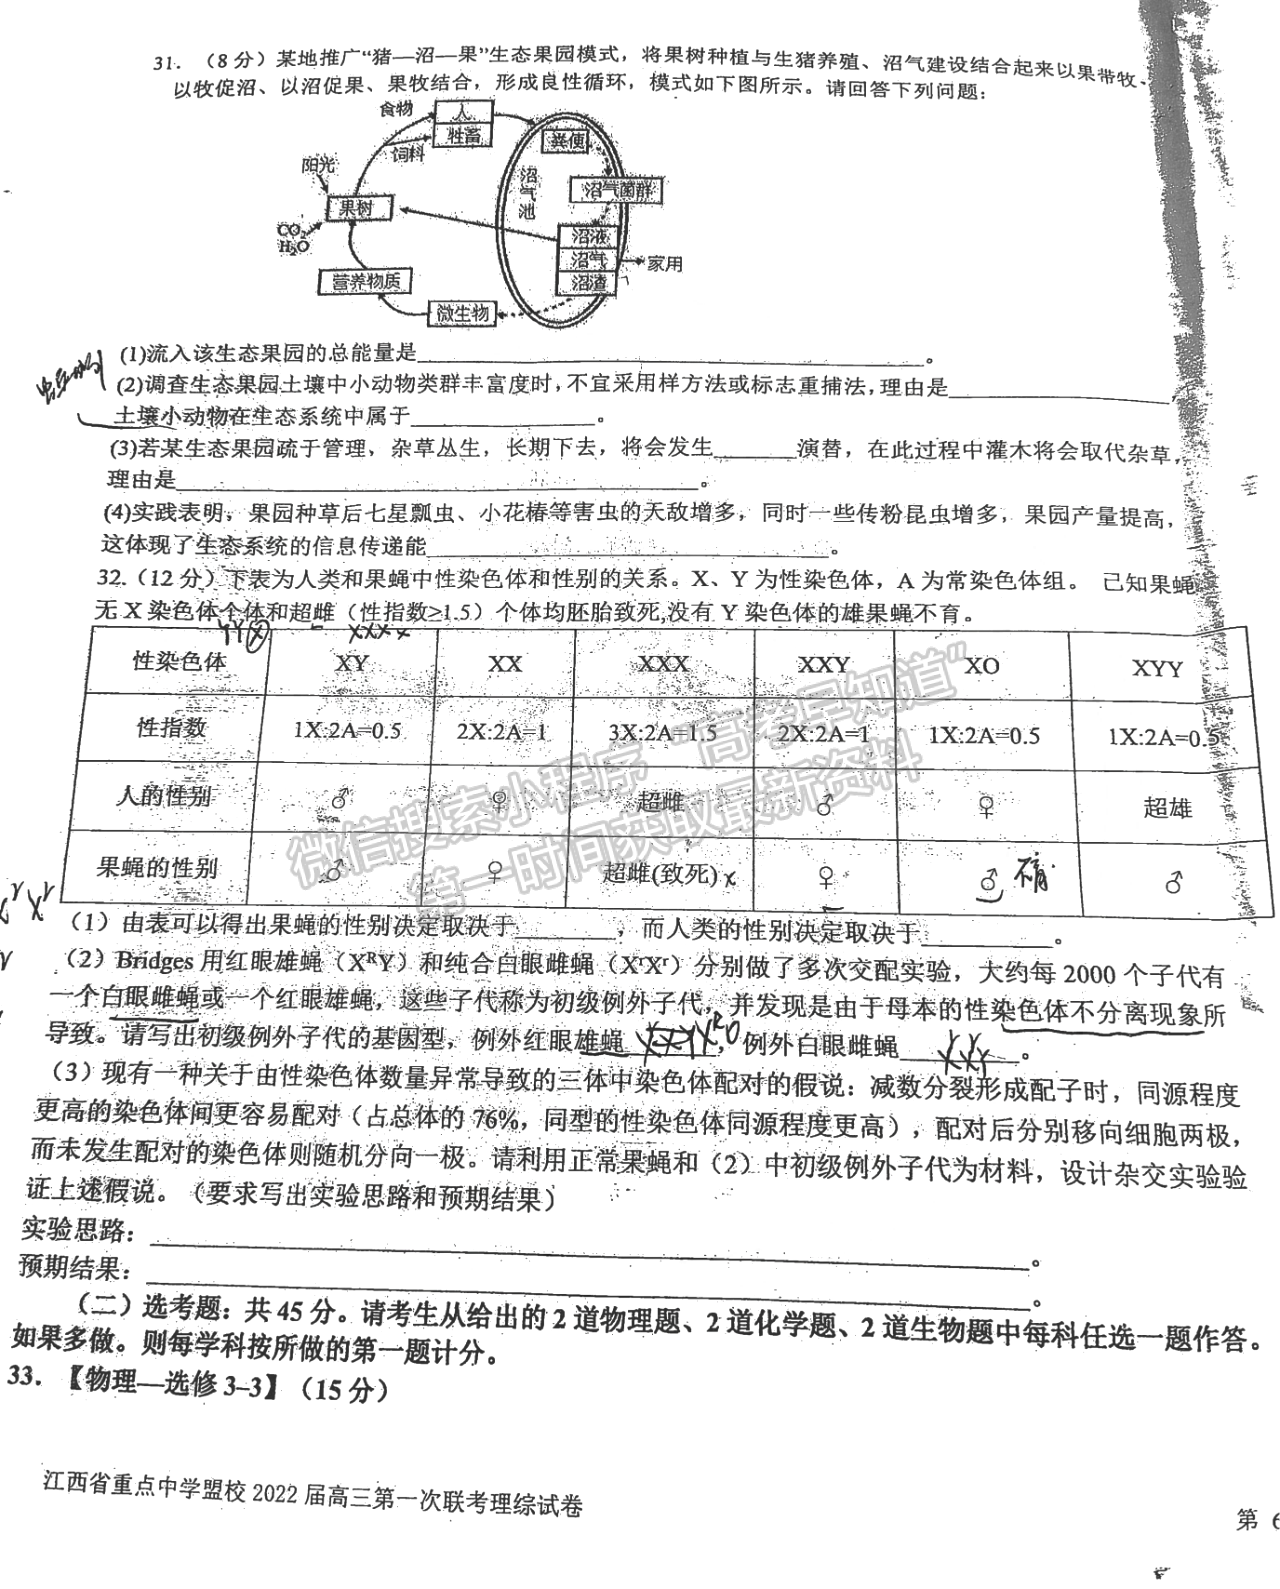 31. （8 分）某地推广“猪—沼—果”生态果园模式，将果树种植与生猪养殖、沼气建设结合起来以果带牧、
以牧促沼、以沼促果、果牧结合，形成良性循环，模式如下图所示。请回答下列问题：
食物
人
牲畜
饲料
粪便
阳光
沼气池
沼气菌群
果树
CO₂
H₂O
沼液
沼气
沼渣
家用
营养物质
微生物
(1)流入该生态果园的总能量是____。
(2)调查生态果园土壤中小动物类群丰富度时,不宜采用样方法或标志重捕法,理由是____,
土壤小动物在生态系统中属于____。
(3)若某生态果园疏于管理，杂草丛生，长期下去，将会发生____演替，在此过程中灌木将会取代杂草，
理由是____。
(4)实践表明，果园种草后七星瓢虫、小花椿等害虫的天敌增多，同时一些传粉昆虫增多，果园产量提高，
这体现了生态系统的信息传递能____。
32.（12 分）下表为人类和果蝇中性染色体和性别的关系。X、Y 为性染色体，A 为常染色体组。 已知果蝇
无 X 染色体个体和超雌（性指数≥1.5）个体均胚胎致死,没有 Y 染色体的雄果蝇不育。
YY XXXX
性染色体 XY XX XXX XXY XO XYY
性指数 1X:2A=0.5 2X:2A=1 3X:2A=1.5 2X:2A=1 1X:2A=0.5 1X:2A=0.5
人的性别 ♂ ♀ 超雌 ♂ ♀ 超雄
果蝇的性别 ♂ ♀ 超雌(致死) x ♀ ♂ ♂
（1）由表可以得出果蝇的性别决定取决于____，而人类的性别决定取决于____。
（2）Bridges 用红眼雄蝇（XᴿY）和纯合白眼雌蝇（XʳXʳ）分别做了多次交配实验，大约每 2000 个子代有
一个白眼雌蝇或一个红眼雄蝇，这些子代称为初级例外子代，并发现是由于母本的性染色体不分离现象所
导致。请写出初级例外子代的基因型，例外红眼雄蝇____，例外白眼雌蝇____。
（3）现有一种关于由性染色体数量异常导致的三体中染色体配对的假说：减数分裂形成配子时，同源程度
更高的染色体间更容易配对（占总体的 76%，同型的性染色体同源程度更高），配对后分别移向细胞两极，
而未发生配对的染色体则随机分向一极。请利用正常果蝇和（2）中初级例外子代为材料，设计杂交实验验
证上述假说。（要求写出实验思路和预期结果）
实验思路：____。
预期结果：____。
（二）选考题：共 45 分。请考生从给出的 2 道物理题、2 道化学题、2 道生物题中每科任选一题作答。
如果多做。则每学科按所做的第一题计分。
33. 【物理—选修 3–3】（15 分）
微信搜索小程序“高考早知道”
第一时间获取最新资料
江西省重点中学盟校 2022 届高三第一次联考理综试卷
第 6